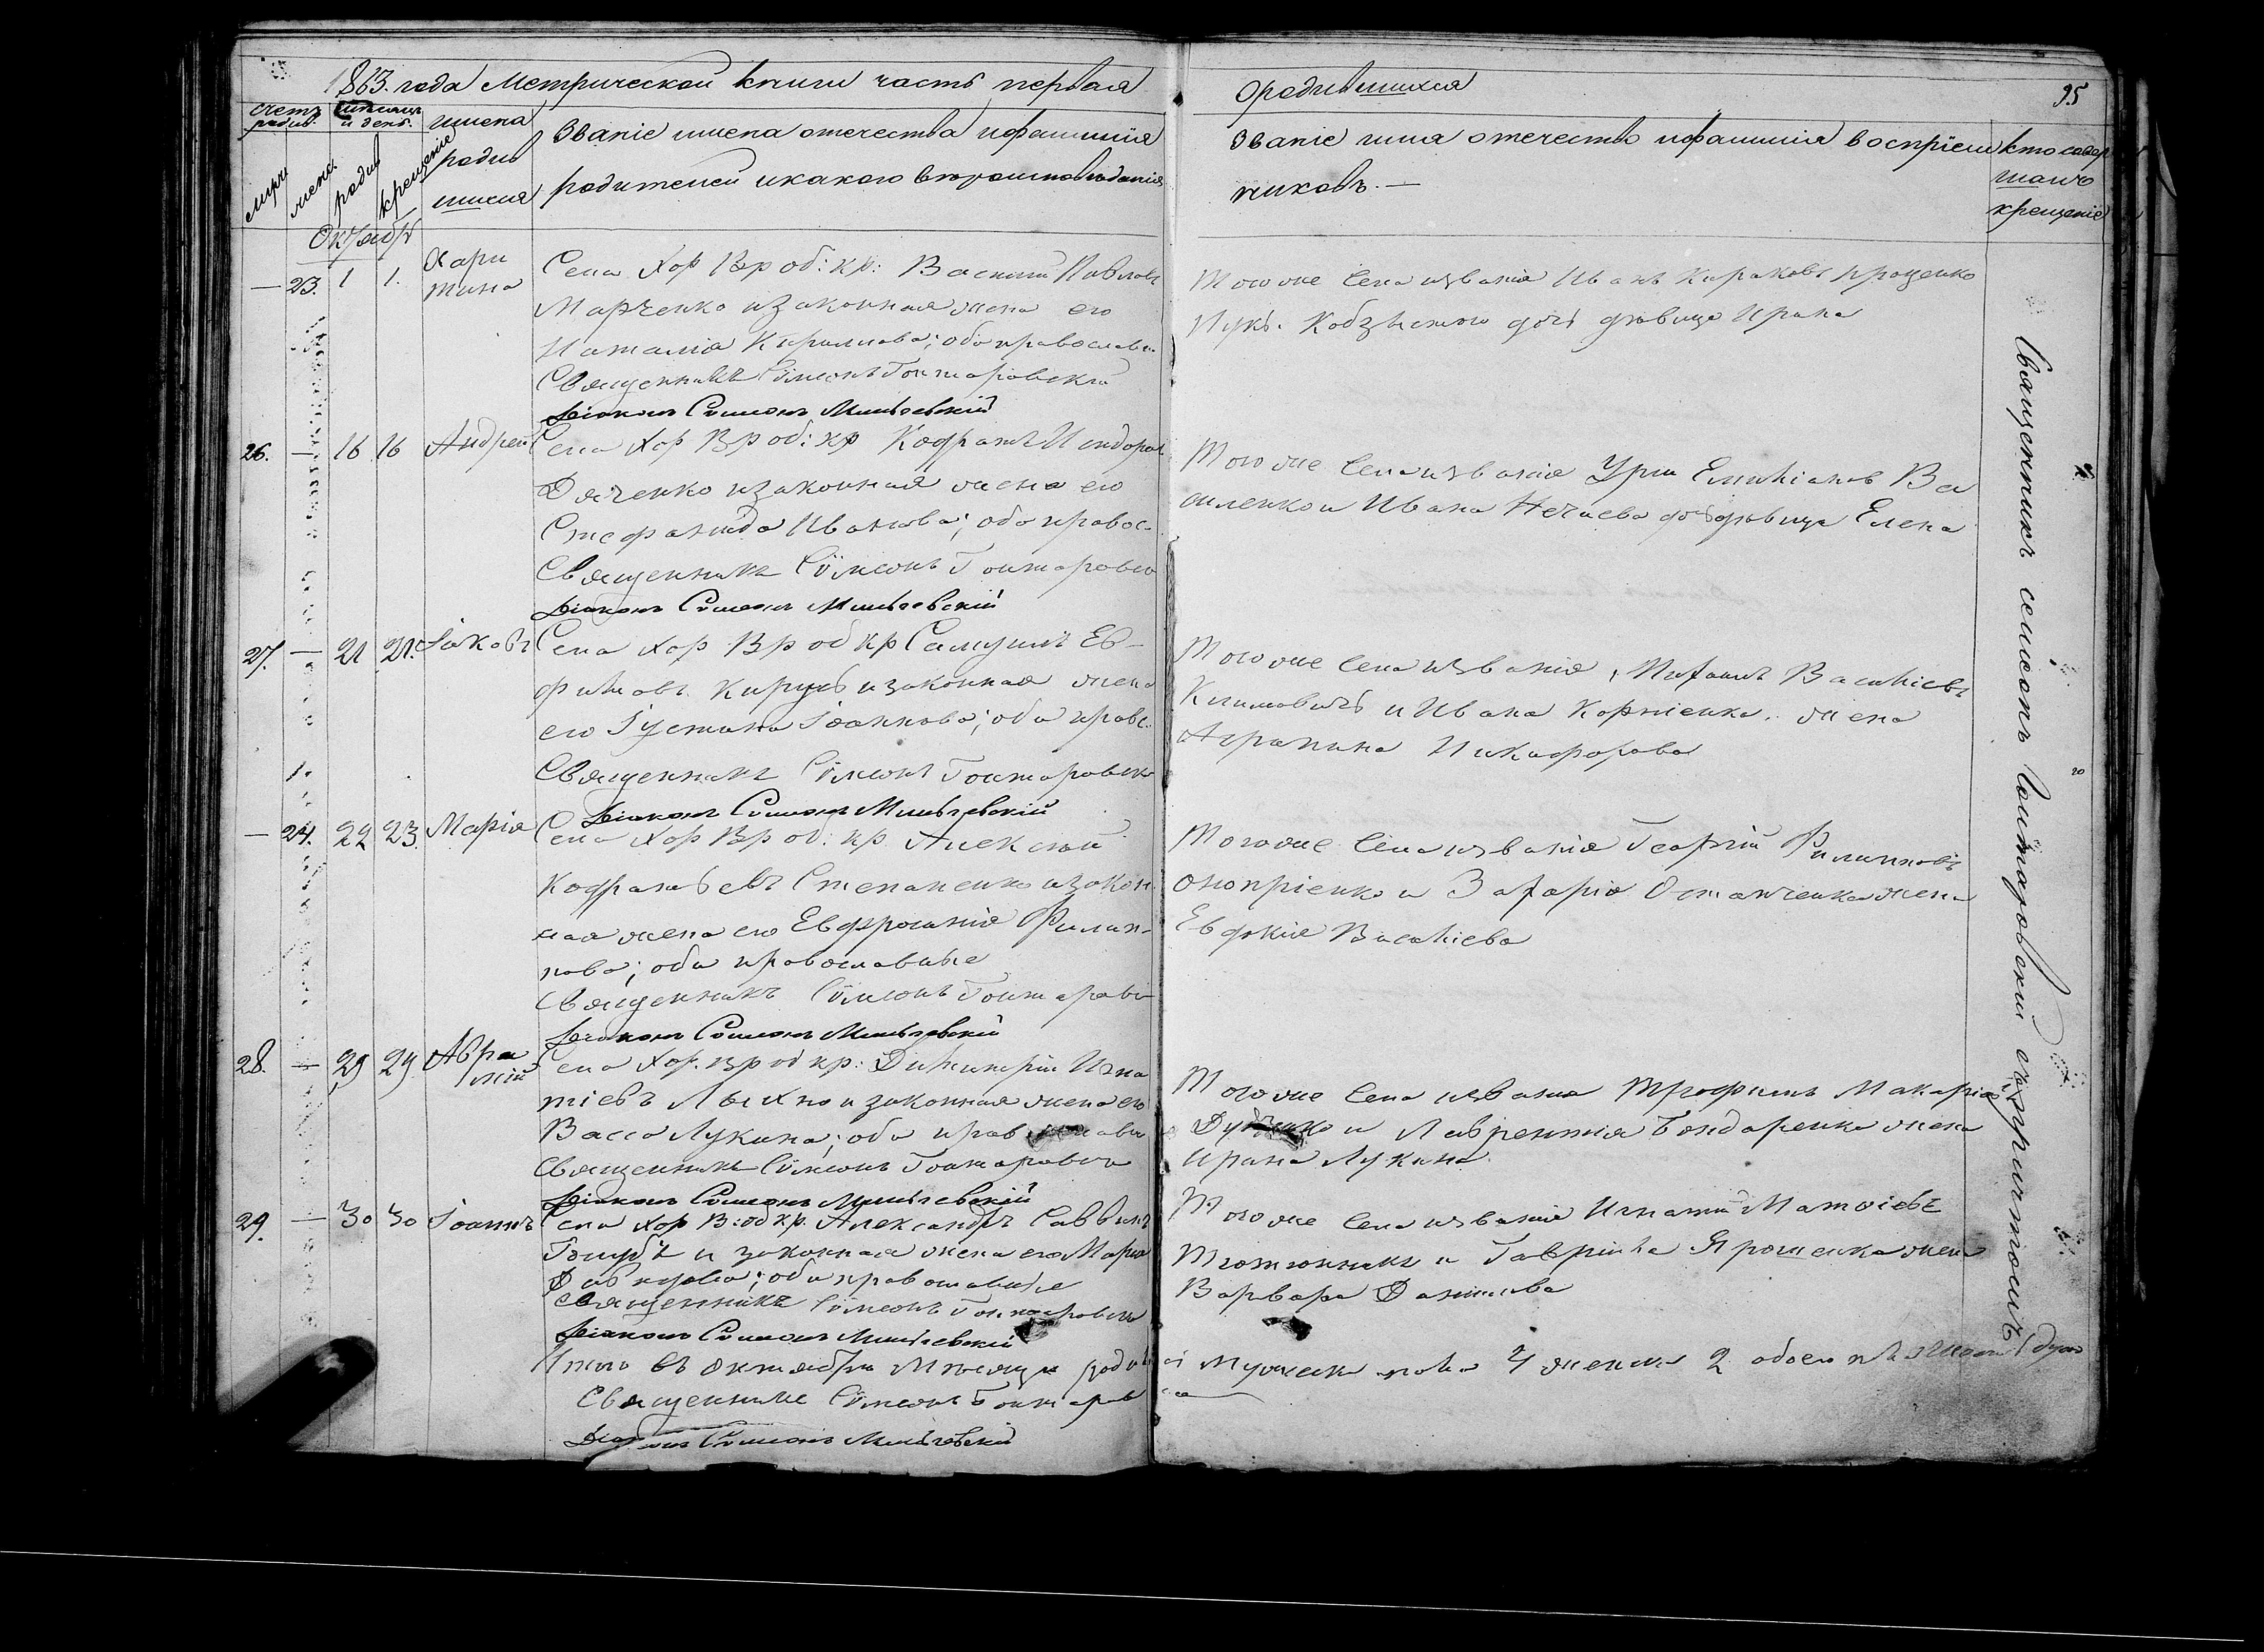 1863. года Метрической книги часть первая
о родившихся
95
счетъ родив:
мѣсяцъ и день.
муж
жен.
родив
крещение
имена родив шихся
Званіе имена отечества и фамилія
родителей и какого вѣроисповѣданія
Званіе имя отечество и фамилія воспріем
никовъ. —
кто совер
шалъ
крещеніе
Октябрь
— 23. 1 1. Хари
тина
Села Хор Вр об: кр: Василій Павловъ
Марченко и законная жена его
Наталія Кирилова; оба православн
Священникъ Сѵмеонъ Гонтаровскій
Діаконъ Симеонъ
Того же села и званія Иванъ
дочь дѣвица Ирина
26. — 16 16 Андрей
Села Хор Вр об: кр Кодратъ Исидоров
Дяченко и законная жена его
Стефанида Иванова; оба правос-
Священникъ Сѵмеонъ Гонтаровск
Діаконъ Симеонъ
Того же села и званія Емиліановъ Ва
силенко и Ивана Нечаева дочь дѣвица Елена
27. — 21 21. Іаковъ
Села Хор Вр об кр Самуилъ Ев-
фимовъ и законная жена
его Іустина Іоаннова; оба правс.
Священникъ Сѵмеонъ Гонтаровск
Діаконъ Симеонъ
Того же села и званія, Михаилъ Василіевъ
Климовичъ и Ивана Корніенка. жена
Агрипина Никифорова
— 24. 22 23. Марія
Села Хор Вр об: кр Алексѣй
Кодратьевъ Степаненко и закон
ная жена его Евфросинія Филип-
пова; оба православные
Священникъ Сѵмеонъ Гонтаровск
Діаконъ Симеонъ
Того же села и званія Георгій Филиповъ
Оноприенко и Захарія Остапченка жена
Евдокія Василіева
28. — 29 29 Авра
мій
Села Хор. Вр об кр: Димитрій Игна
тіевъ Лихно и законная жена его
Васса Лукина; оба православн
Священникъ Сѵмеонъ Гонтаровск
Діаконъ Симеонъ
Того же села и званія Трофимъ Макаріев
и Лаврентія Бондаренка жена
Ирина Лукина.
29. — 30 30 Іоаннъ
Села Хор В: об кр. Александръ Саввинъ
Голубъ и законная жена его Марія
оба православные
Священникъ Сѵмеонъ Гонтаровск
Діаконъ Симеонъ
Того же села и званія Игнатій Матѳіевъ
Тютюнникъ и Гавріила Ярошенка жена
Варвара Данилова
Итого въ октябрѣ мѣсяцѣ родил
мужеска пола 4 женска 2 обоего пола шесть душъ
Священникъ Сѵмеонъ Гонтаров
Діаконъ Симеонъ
Священникъ Семіонъ Гонтаровскій съ причтомъ